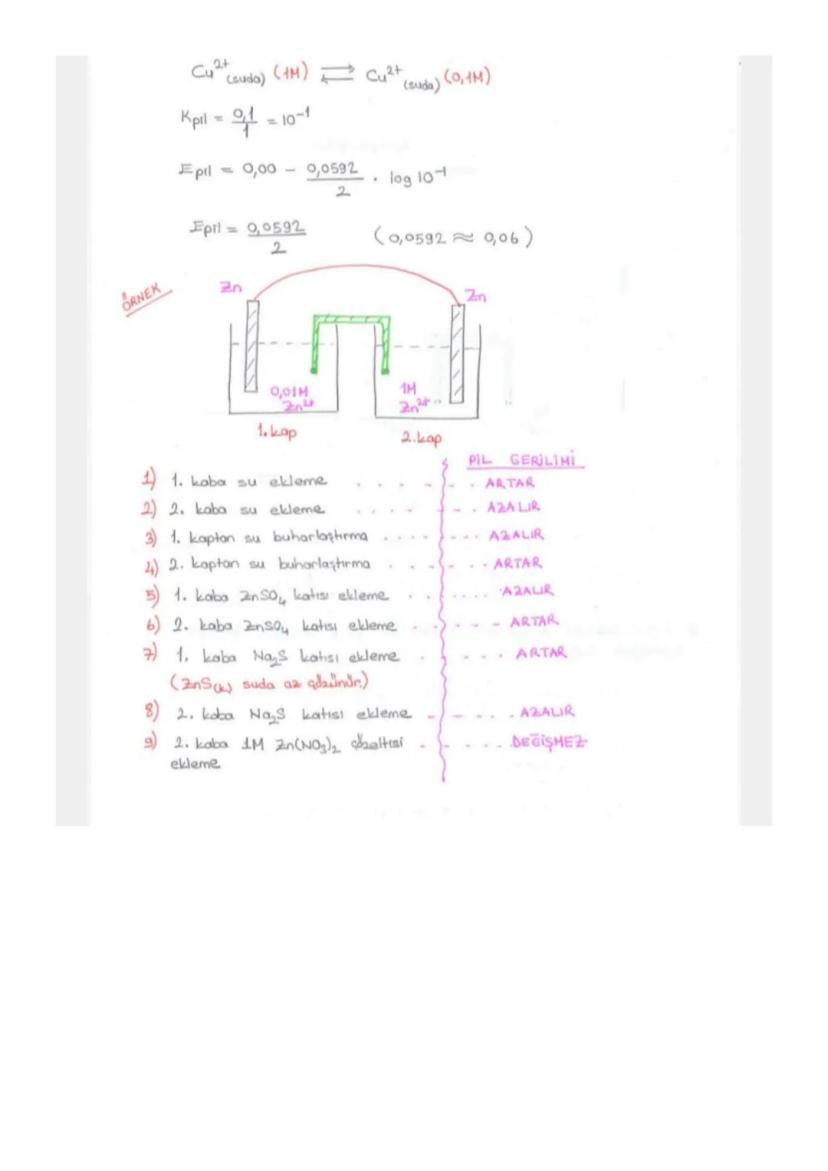 Cu²⁺(suda) (1M) ⇌ Cu²⁺(suda) (0,1M)
Kpil = 0,1/1 = 10⁻¹
Epil = 0,00 - 0,0592/2 . log 10⁻¹
Epil = 0,0592/2 (0,0592 ≈ 0,06)
ÖRNEK
Zn Zn
0,01M Zn²⁺ 1M Zn²⁺
1. kap 2. kap
PİL GERİLİMİ
1) 1. kaba su ekleme . . . . - . . ARTAR
2) 2. kaba su ekleme . . . . - - . . AZALIR
3) 1. kaptan su buharlaştırma . . . . - . . . . AZALIR
4) 2. kaptan su buharlaştırma . . . - . . ARTAR
5) 1. kaba ZnSO₄ katısı ekleme . . . . . . . AZALIR
6) 2. kaba ZnSO₄ katısı ekleme . - . - - - ARTAR
7) 1. kaba Na₂S katısı ekleme . . . . . ARTAR
(ZnS(k) suda az çözünür.)
8) 2. kaba Na₂S katısı ekleme - - - . . . AZALIR
9) 2. kaba 1M Zn(NO₃)₂ çözeltisi . - . . . . DEĞİŞMEZ
ekleme